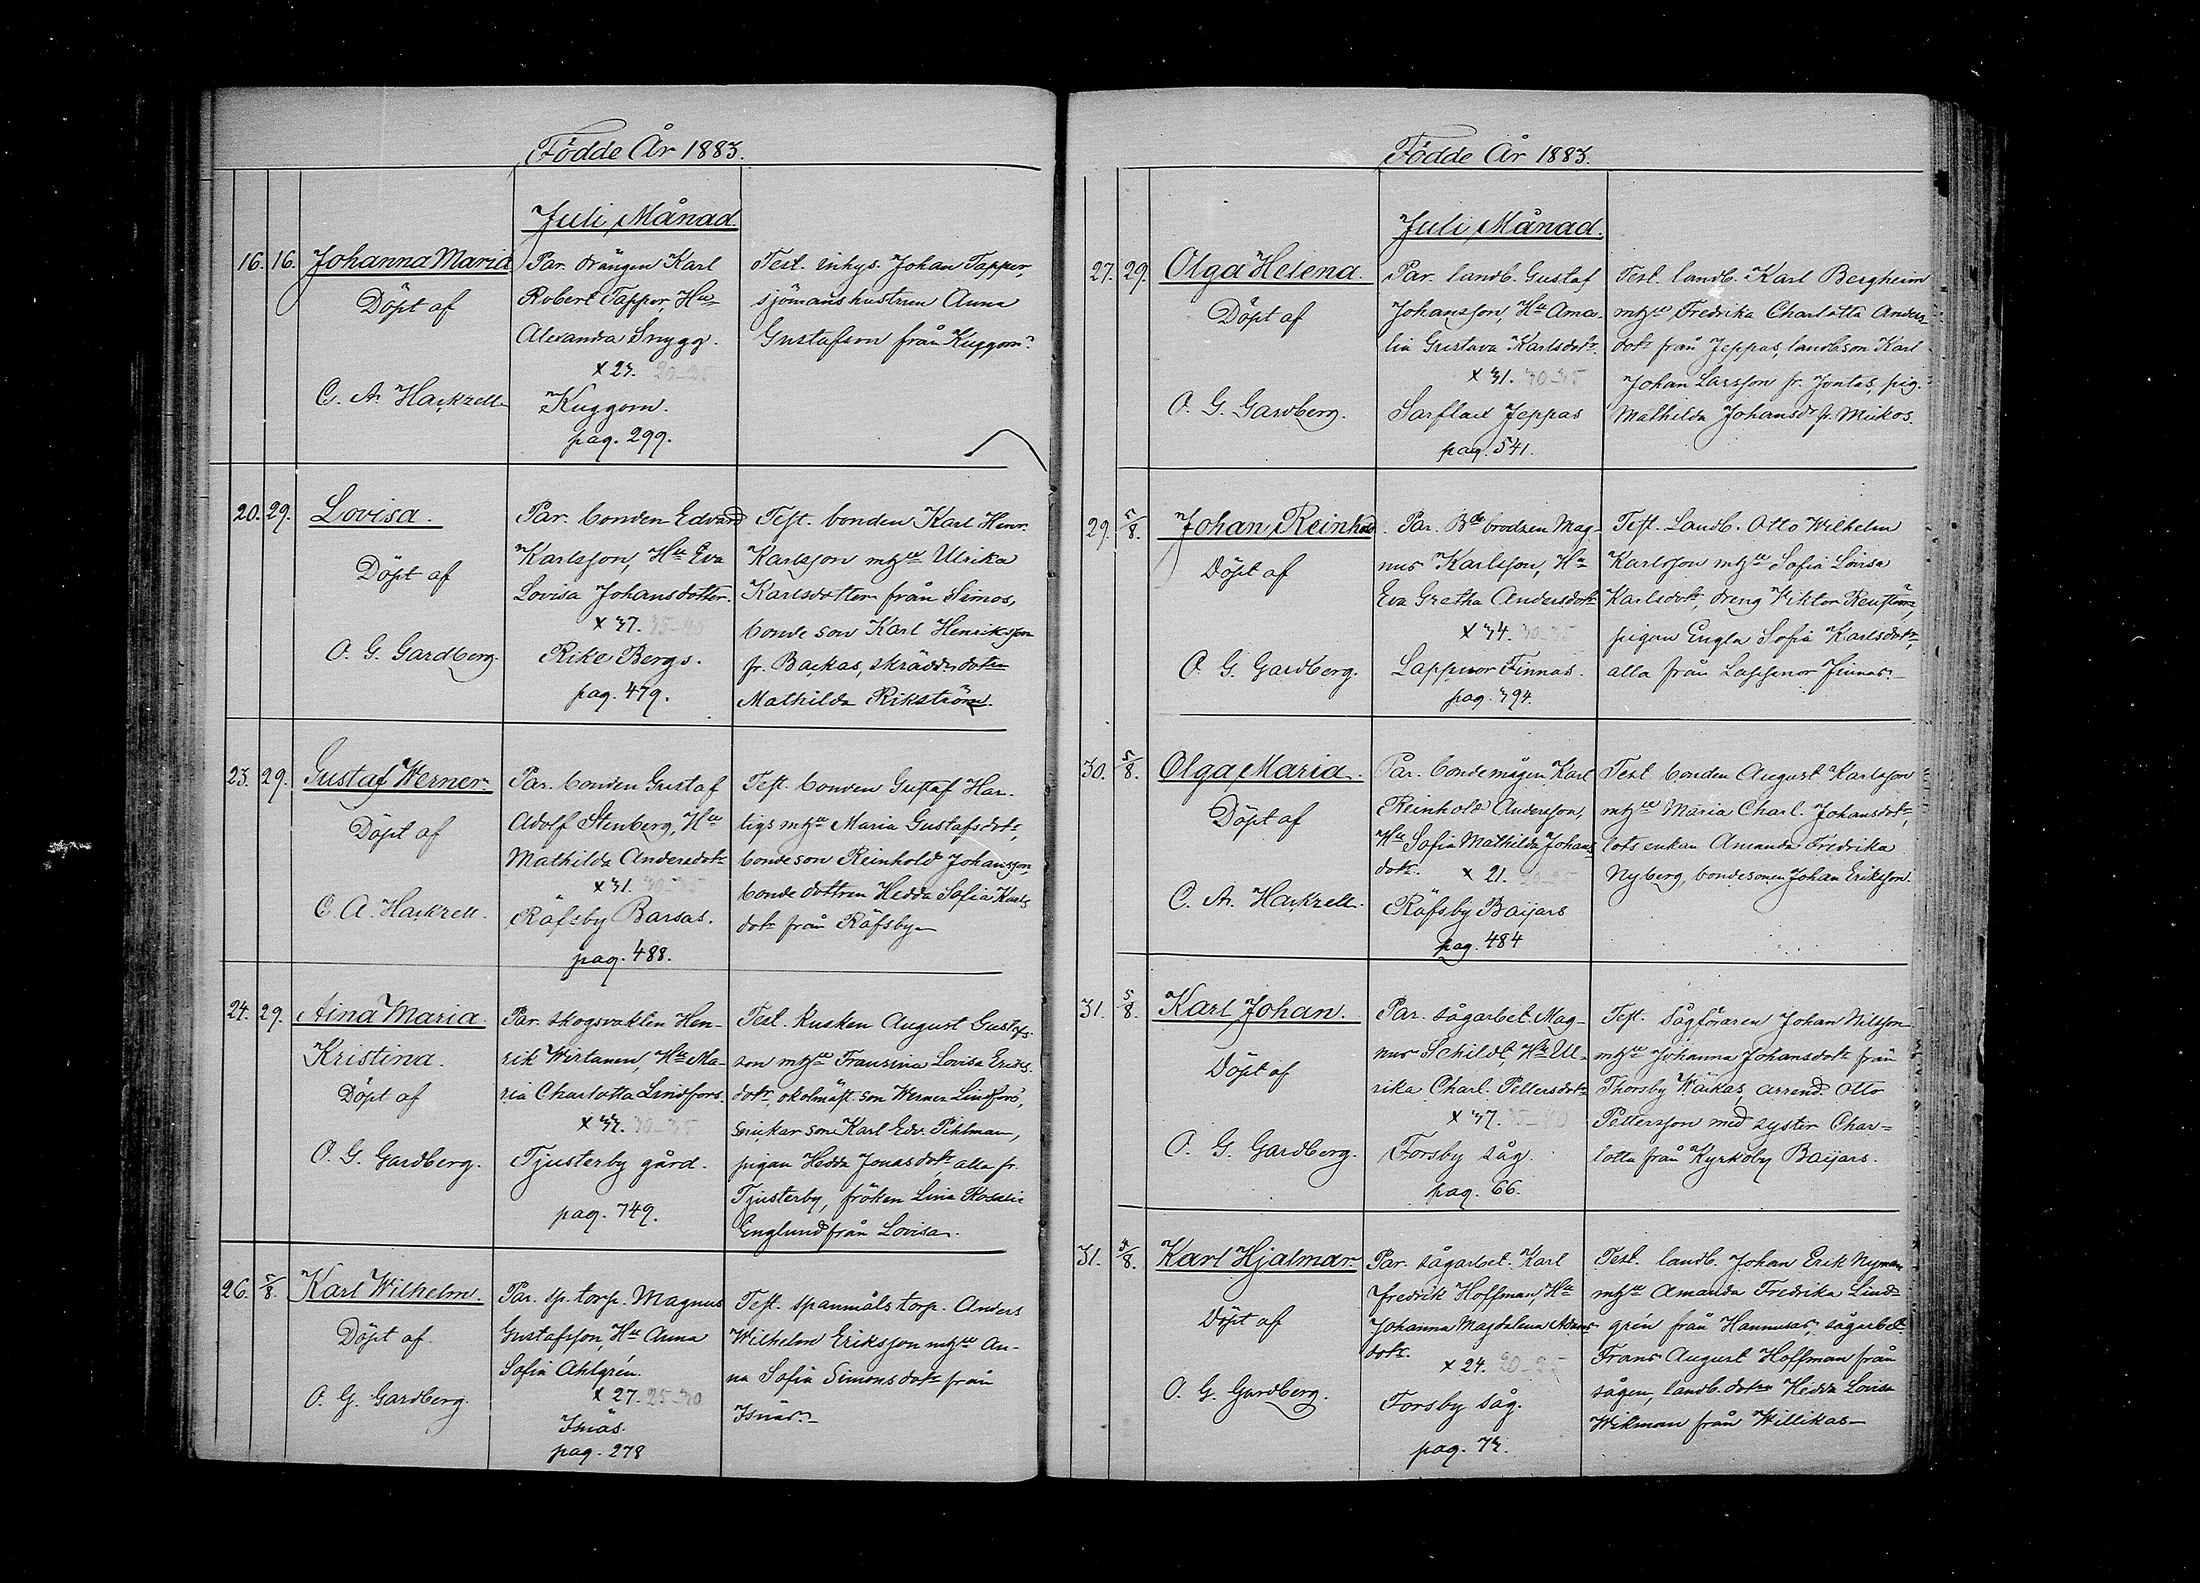 Födde År 1883.
Juli Månad.
16. 16. Johanna Maria
Döpt af
C. A. Hackzell
Par. drängen Karl
Robert Tapper, Hu
Alexandra Snygg.
x 23. 20-25
Kuggom.
pag. 299.
Test. inhys. Johan Tapper
sjömanshustrun Anna
Gustafson från Kuggom.
20. 29. Lovisa.
Döpt af
O. G. Gardberg.
Par. bonden Edvard
Karlsson, Hu Eva
Lovisa Johansdotter.
x 37. 35-40
Rike Bergs.
pag. 479.
Test. bonden Karl Henr.
Karlsson mhu Ulrika
Karlsdotter från Simos,
bonde son Karl Henriksson
fr. Backas, skräddardotn
Mathilda Rikström.
23. 29. Gustaf Werner.
Döpt af
C. A. Hackzell.
Par. bonden Gustaf
Adolf Stenberg, Hu
Mathilda Andersdotr
x 31. 30-35
Räfsby Barsas.
pag. 488.
Test. bonden Gustaf Har-
tigs mhu Maria Gustafsdotr,
bondeson Reinhold Johansson,
bonde dottren Hedda Sofia Karls
dotr från Räfsby
24. 29. Aina Maria
Kristina.
Döpt af
O. G. Gardberg.
Par. skogsvakten Hen-
rik Wirtanen, Hu Ma-
ria Charlotta Lindfors.
x 33. 30-35
Tjusterby gård.
pag. 749.
Test. kusken August Gustafs-
son mhu Fransina Lovisa Eriks
dotr, skolmäst. son Werner Lindfors,
son Karl Edv. Pihlman,
pigan Hedda Jonasdotr, alla fr.
Tjusterby, fröken Lina Rosalie
Englund från Lovisa.
26. 5/8. Karl Wilhelm.
Döpt af
O. G. Gardberg.
Par. sp. torp. Magnus
Gustafsson, Hu Anna
Sofia Ahlgrén.
x 27. 25-30
Isnäs.
pag. 278
Test. spanmåls torp. Anders
Wilhelm Eriksson mhu An-
na Sofia Simonsdotr från
Isnäs.
Födde År 1883.
Juli Månad.
27. 29. Olga Helena.
Döpt af
O. G. Gardberg.
Par. landb. Gustaf
Johansson, Hu Ama-
lia Gustava Karlsdotr
x 31. 30-35
Sarflax Jeppas
pag. 541.
Test. landb. Karl Bergheim
mhu Fredrika Charlotta Anders-
dotr från Jeppas, landbson Karl
Johan Larsson fr. Jontas, pig.
Mathilda Johansdr fr. Mickos.
29. 5/8. Johan Reinhold
Döpt af
O. G. Gardberg.
Par. Bde brodren Mag-
nus Karlsson, Hu
Eva Gretha Andersdotr
x 34. 30-35
Lappnor Finnas.
pag. 394.
Test. Landb. Otto Wilhelm
Karlsson mhu Sofia Lovisa
Karlsdotr, dreng Viktor Renström,
pigan Engla Sofia Karlsdotr,
alla från Lappnor Finnas
30. 5/8. Olga Maria.
Döpt af
C. A. Hackzell.
Par. bondemågen Karl
Reinhold Andersson,
Hu Sofia Mathilda Johans
dotr. x 21. 20-25
Räfsby Baijars
pag. 484
Test. bonden August Karlsson
mhu Maria Charl. Johansdotr,
lots enkan Amanda Fredrika
Nyberg, bondesonen Johan Eriksson.
31. 5/8. Karl Johan.
Döpt af
O. G. Gardberg.
Par. sågarbet. Mag-
nus Schildt, Hu Ul-
rika Charl. Pettersdotr
x 37. 35-40
Forsby såg.
pag. 66.
Test. Sågföraren Johan Nilsson
mhu Johanna Johansdotr från
Thorsby Wäckas, arrend. Otto
Pettersson med syster Char-
lotta från Kyrkoby Baijars.
31. 5/8. Karl Hjalmar
Döpt af
O. G. Gardberg.
Par. sågarbet. Karl
Fredrik Hoffman, Hu
Johanna Magdalena Adams
dotr. x 24. 20-25
Forsby såg.
pag. 73.
Test. landb. Johan Erik Nyman
mhu Amanda Fredrika Lind-
grén från Hannusas, sågarbet.
Frans August Hoffman från
sågen, landb. dotrn Hedda Lovisa
Wikman från Willikas